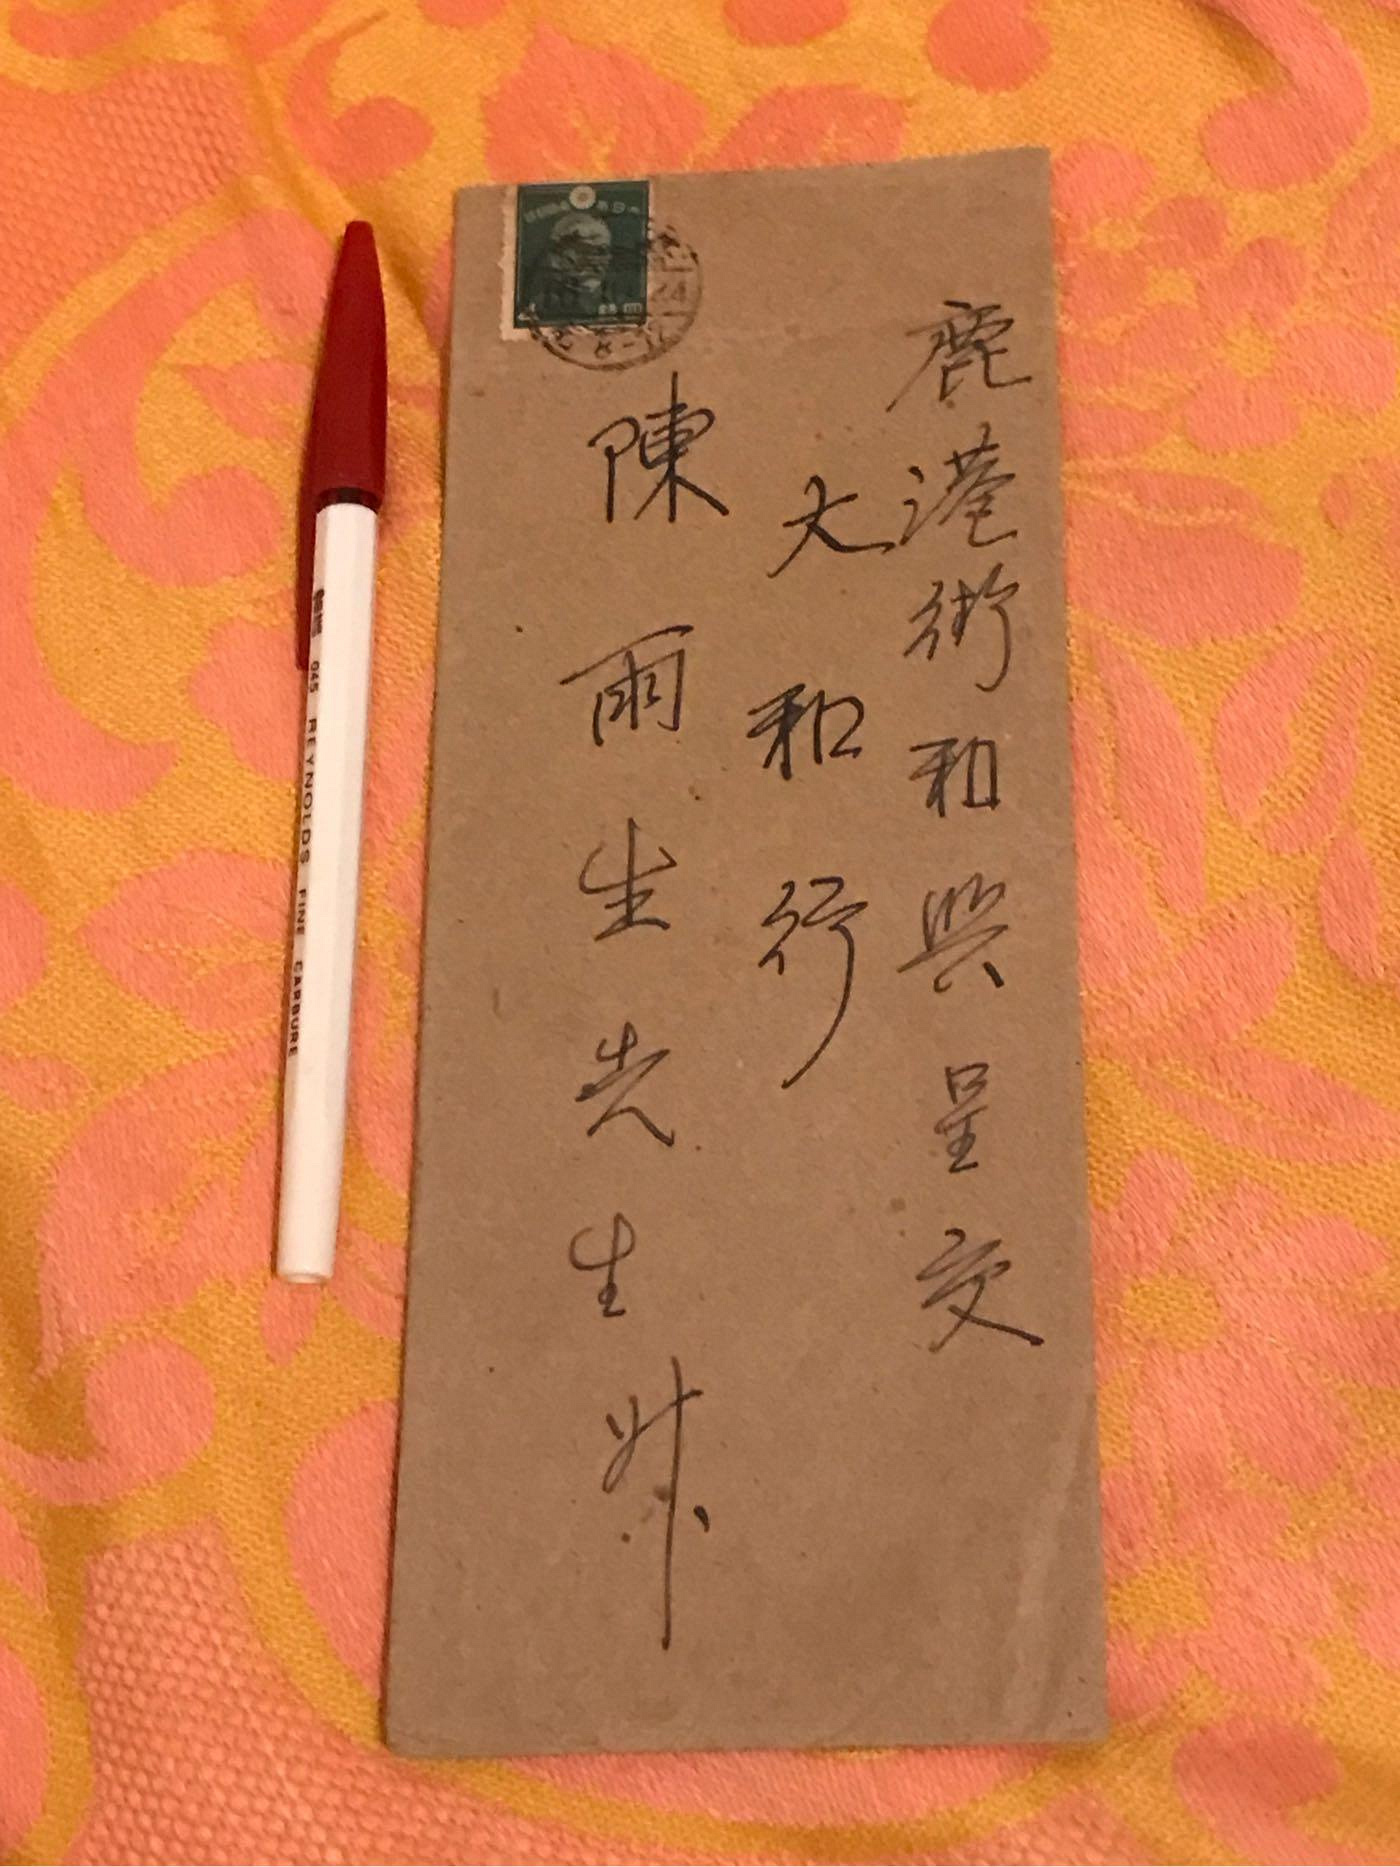 鹿港街和興呈交
大和行
陳雨生先生
045 REYNOLDS FINE CARBURE